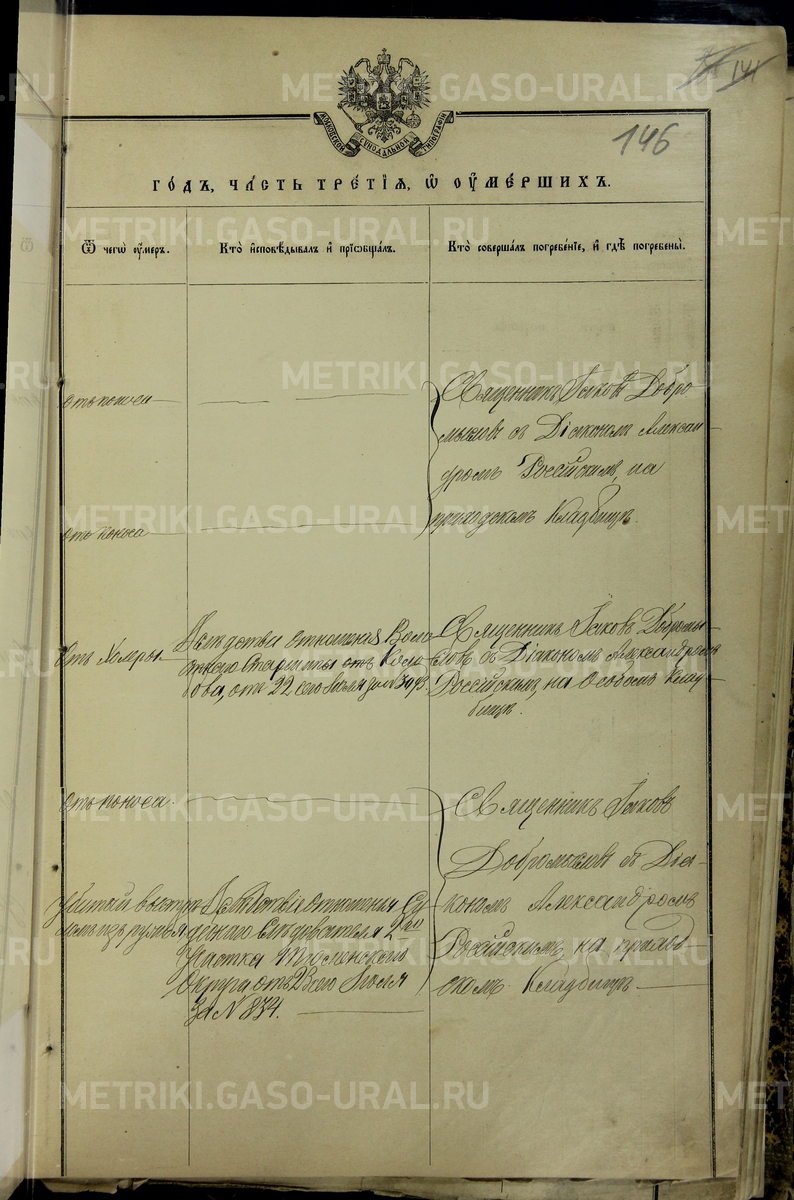 METRIKI.GASO-URAL.RU
141
МОСКОВСКОЙ СѴНОДАЛЬНОЙ ТИПОГРАФІИ
146
ГОДЪ, ЧАСТЬ ТРЕТІЯ, Ѡ ОУМЕРШИХЪ.
Ѿ чегѡ оумеръ.
Кто исповѣдывалъ и пріобщалъ.
Кто совершалъ погребеніе, и гдѣ погребены.
Отъ поноса
Священникъ Іаковъ Добро-
мысловъ съ Діакономъ Алексан-
дромъ Россійскимъ, на
приходскомъ Кладбищѣ.
отъ поноса
Отъ Холеры
отношенія Воло-
стнаго Старшины
отъ 22 сего Іюля за № 3093.
Священникъ Іаковъ Добромы-
словъ съ Діакономъ Александромъ
Россійскимъ, на Особомъ Клад-
бищѣ.
отъ поноса.
Священникъ Іаковъ
Добромысловъ съ Діа-
кономъ Александромъ
Россійскимъ, на приход-
скомъ Кладбищѣ
убитый выстрѣ-
ломъ изъ ружья
Вслѣдствіе отношенія Су-
дебнаго Слѣдователя 2го
Участка Тюменскаго
Округа отъ Іюля
за № 834.
METRIKI.GASO-URAL.RU